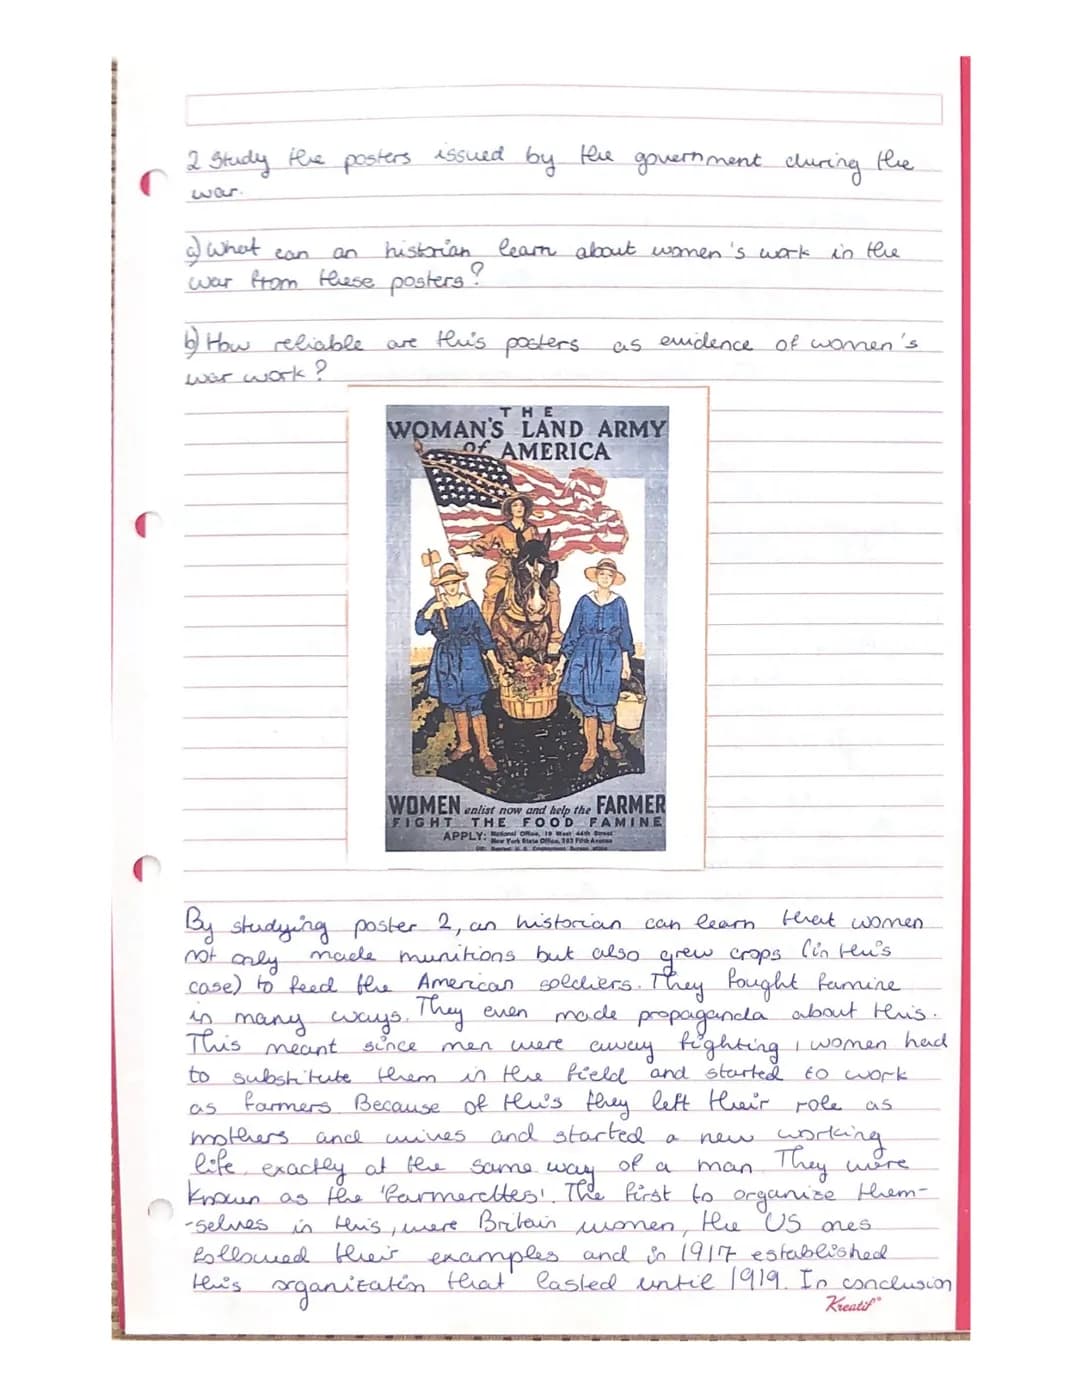 2 Study the posters issued by the government during the
war.
a) What can an historian learn about women's work in the
war from these posters?
b) How reliable are this posters as evidence of women's
war work?
THE
WOMAN'S LAND ARMY
of AMERICA
WOMEN enlist now and help the FARMER
FIGHT THE FOOD FAMINE
APPLY: National Office, 19 West 44th Street
New York State Office, 303 Fifth Avenue
U.S. Employment Bureau office
By studying poster 2, an historian can learn that women
not only made munitions but also grew crops (in this
case) to feed the American soldiers. They fought famine
in many ways. They even made propaganda about this.
This meant since men were away fighting, women had
to substitute them in the field and started to work
as farmers. Because of this they left their role as
mothers and wives and started a new working
life, exactly at the same way of a man. They were
known as the 'farmerettes'. The first to organize them-
-selves in this, were Britain women, the US ones
followed their examples and in 1917 established
this organization that lasted until 1919. In conclusion
Kreatif